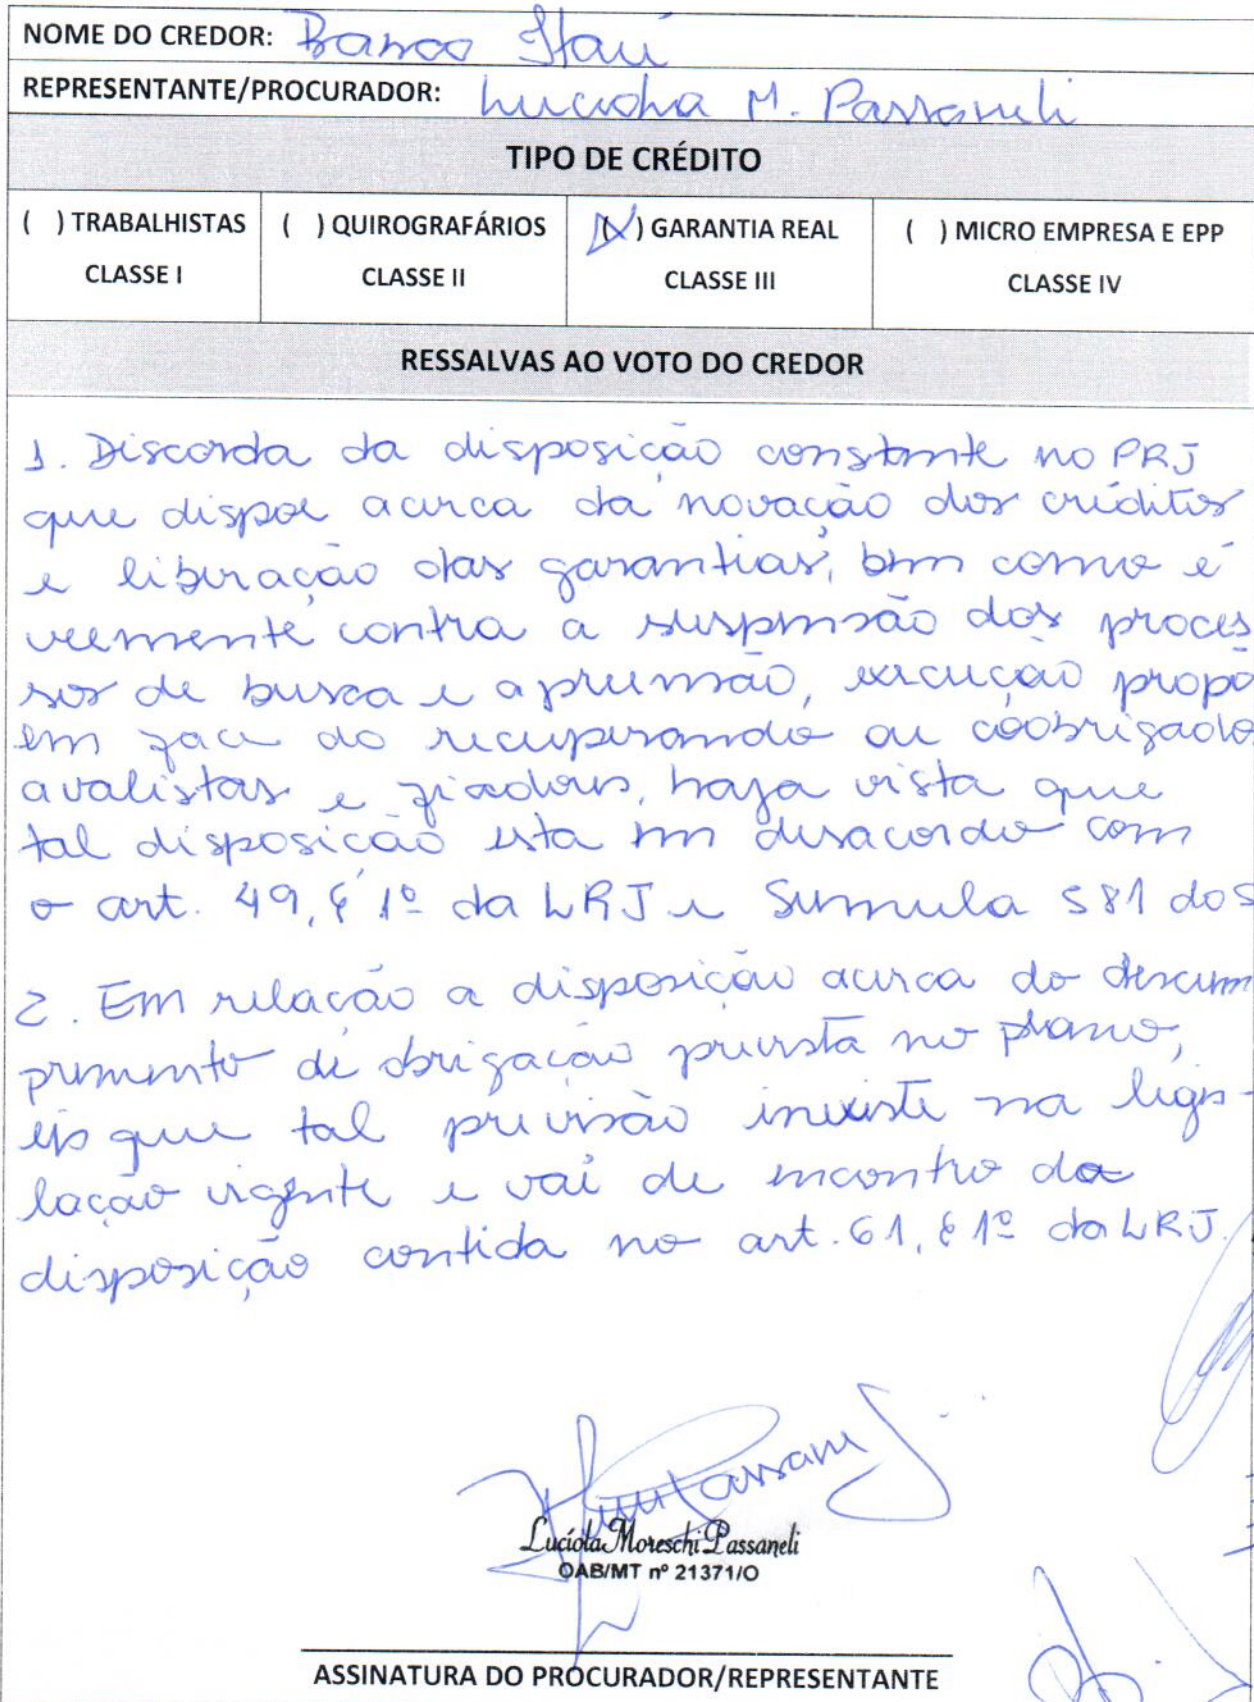 NOME DO CREDOR: Banco Itaú
REPRESENTANTE/PROCURADOR: Luciola M. Passaneli
TIPO DE CRÉDITO
( ) TRABALHISTAS CLASSE I
( ) QUIROGRAFÁRIOS CLASSE II
(X) GARANTIA REAL CLASSE III
( ) MICRO EMPRESA E EPP CLASSE IV
RESSALVAS AO VOTO DO CREDOR
1. Discorda da disposição constante no PRJ
que dispoe acerca da novação dos créditos
e liberação das garantias, bem como é
veemente contra a suspensão dos proces
sos de busca e apreensão, execução propo
em face do recuperando ou coobrigado
avalistas e fiadores, haja vista que
tal disposição esta em desacordo com
o art. 49, § 1º da LRJ e Sumula 581 do S
2. Em relação a disposição acerca do descum
primento de obrigação prevista no plano,
eis que tal previsão inexiste na legis-
lação vigente e vai de encontro da
disposição contida no art. 61, § 1º da LRJ.
Lucíola Moreschi Passaneli
OAB/MT nº 21371/O
ASSINATURA DO PROCURADOR/REPRESENTANTE